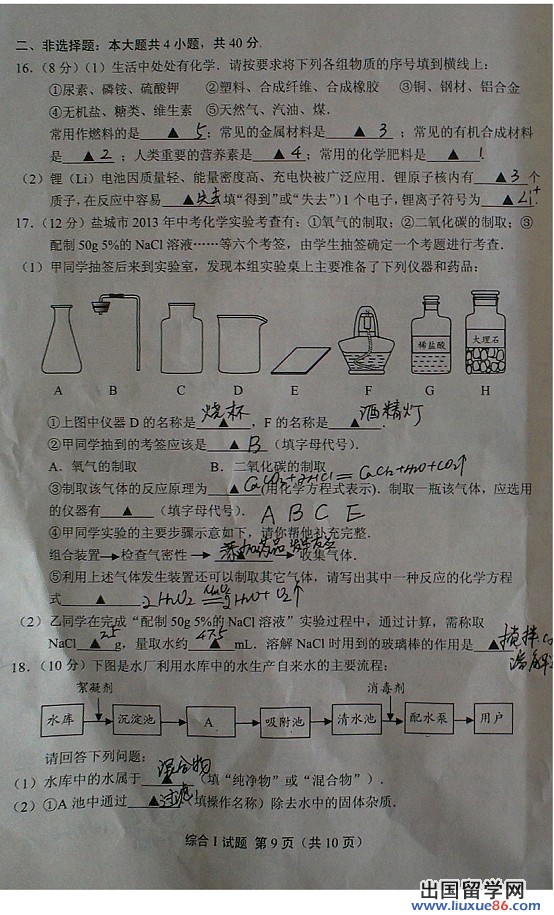 二、非选择题：本大题共4小题，共40分．
16．（8分）（1）生活中处处有化学．请按要求将下列各组物质的序号填到横线上：
①尿素、磷铵、硫酸钾 ②塑料、合成纤维、合成橡胶 ③铜、钢材、铝合金
④无机盐、糖类、维生素 ⑤天然气、汽油、煤．
常用作燃料的是▲5；常见的金属材料是▲3；常见的有机合成材料
是▲2；人类重要的营养素是▲4；常用的化学肥料是▲1
（2）锂（Li）电池因质量轻、能量密度高、充电快被广泛应用．锂原子核内有▲3个
质子，在反应中容易▲失去填“得到”或“失去”）1个电子，锂离子符号为▲Li⁺
17．（12分）盐城市2013年中考化学实验考查有：①氧气的制取；②二氧化碳的制取；③
配制50g 5%的NaCl溶液……等六个考签，由学生抽签确定一个考题进行考查．
（1）甲同学抽签后来到实验室，发现本组实验桌上主要准备了下列仪器和药品：
稀盐酸 大理石
A B C D E F G H
①上图中仪器D的名称是烧杯▲，F的名称是▲酒精灯
②甲同学抽到的考签应该是▲B（填字母代号）．
A．氧气的制取 B．二氧化碳的制取
③制取该气体的反应原理为▲CaCO₃+2HCl=CaCl₂+H₂O+CO₂↑（用化学方程式表示）．制取一瓶该气体，应选用
的仪器有▲（填字母代号）．ABCE
④甲同学实验的主要步骤示意如下，请你帮他补充完整．
组装装置→检查气密性→▲添加药品→收集气体．
⑤利用上述气体发生装置还可以制取其它气体，请写出其中一种反应的化学方程
式▲2H₂O₂=MnO₂=2H₂O+O₂↑
（2）乙同学在完成“配制50g 5%的NaCl溶液”实验过程中，通过计算，需称取
NaCl▲2.5g，量取水约▲47.5mL．溶解NaCl时用到的玻璃棒的作用是▲搅拌
溶解
18．（10分）下图是水厂利用水库中的水生产自来水的主要流程：
絮凝剂 消毒剂
水库 沉淀池 A 吸附池 清水池 配水泵 用户
请回答下列问题：
（1）水库中的水属于▲混合物（填“纯净物”或“混合物”）．
（2）①A池中通过▲过滤（填操作名称）除去水中的固体杂质．
综合Ⅰ试题 第9页（共10页）
出国留学网
www.liuxue86.com